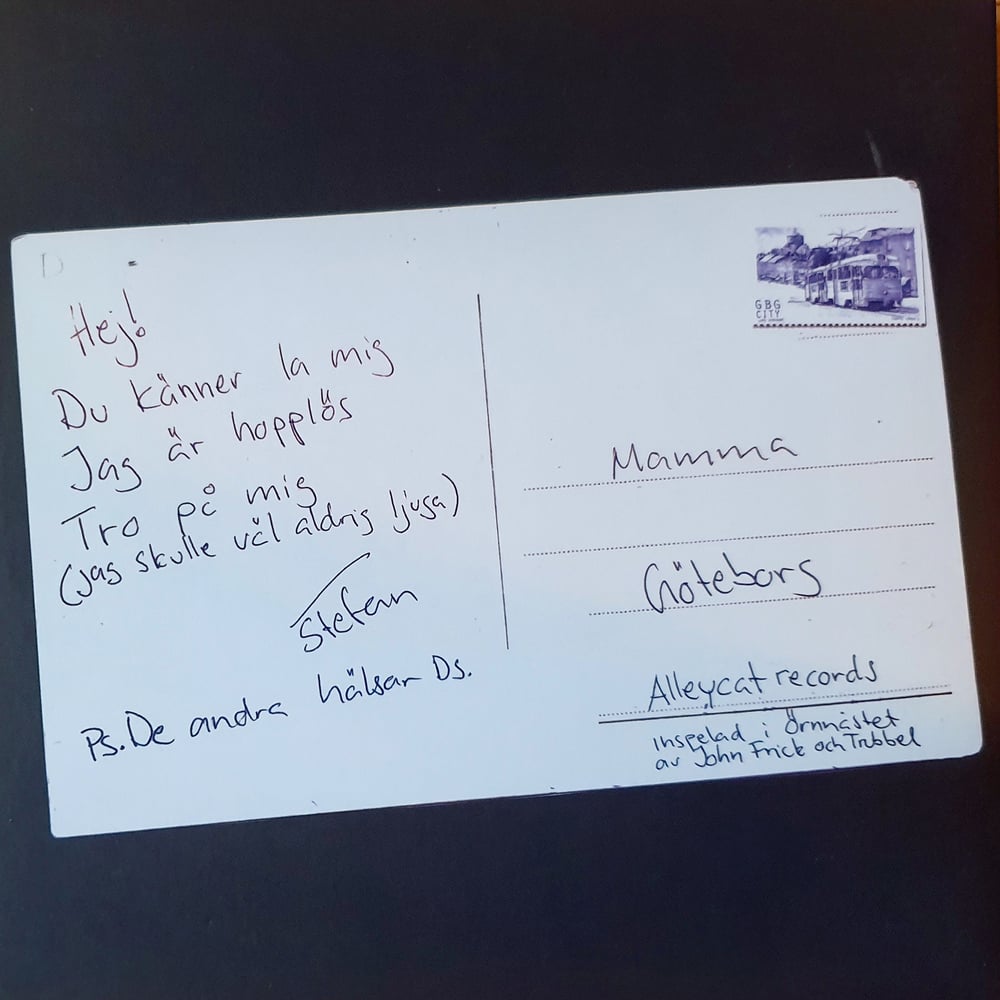 Hej!
Du känner la mig
Jag är hopplös
Tro på mig
(jag skulle väl aldrig ljuga)
Stefan
Ps. De andra hälsar Ds.
GBG
CITY
Mamma
Göteborg
Alleycat records
inspelad i Örnnästet
av John Frick och Trubbel